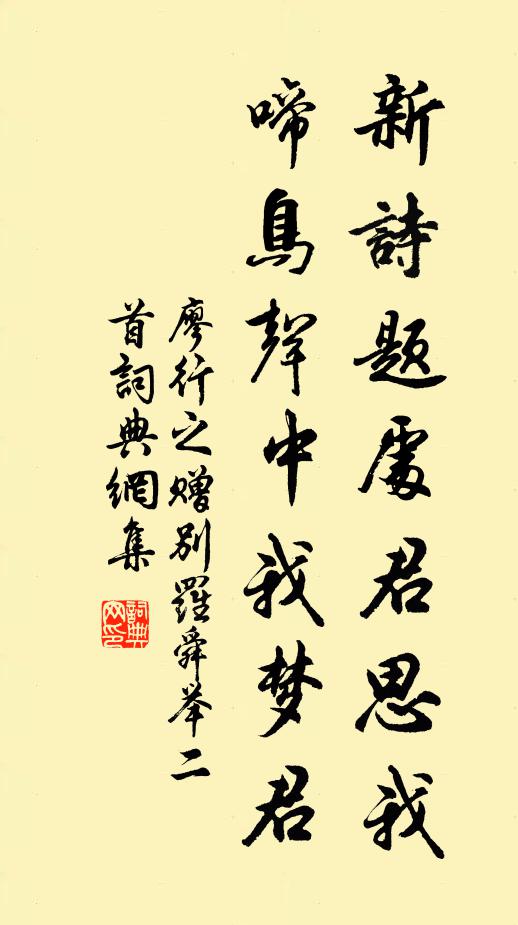 新詩題處君思我
啼鳥聲中我梦君
廖行之赠别羅舜举二
首詞典網集
詞典
网印